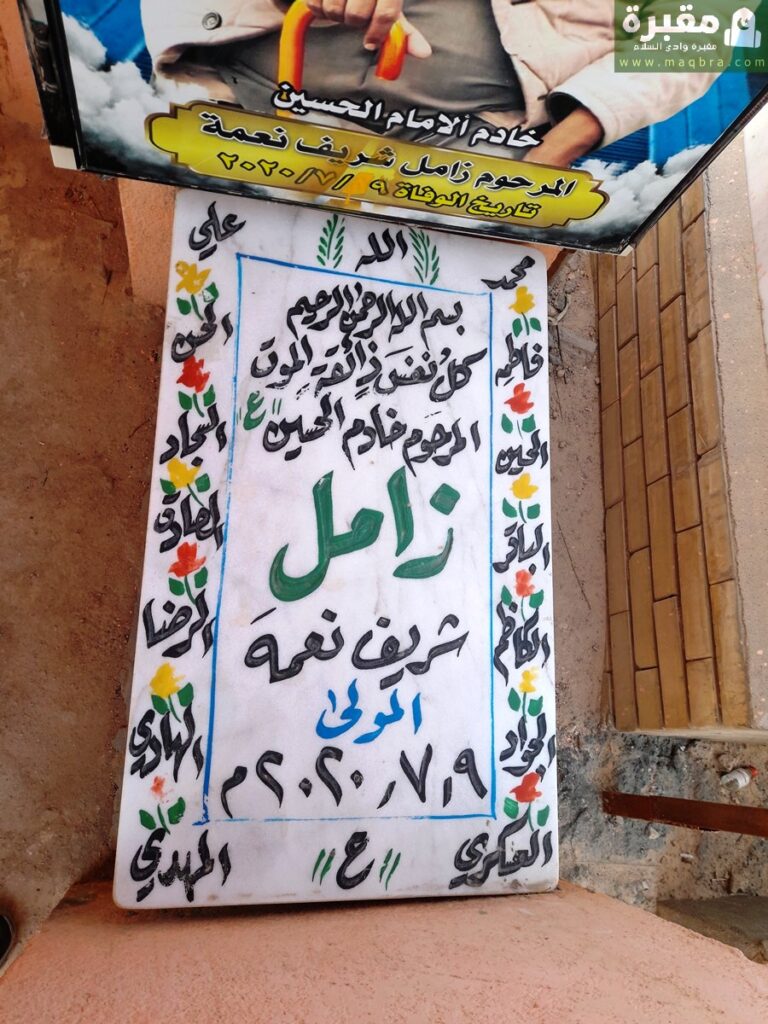 مقبرة
مقبرة وادي السلام
www.maqbra.com
خادم الامام الحسين
المرحوم زامل شريف نعمة
تاريخ الوفاة ٢٠٢٠/٧/٩
محمد
الله
علي
فاطمة
الحسين
الباقر
الكاظم
الجواد
العسكري
الحسن
السجاد
الصادق
الرضا
الهادي
المهدي
بسم الله الرحمن الرحيم
كل نفس ذائقة الموت
المرحوم خادم الحسين "ع"
زامل
شريف نعمة
المولى
٢٠٢٠،٧،٩م
"ع"